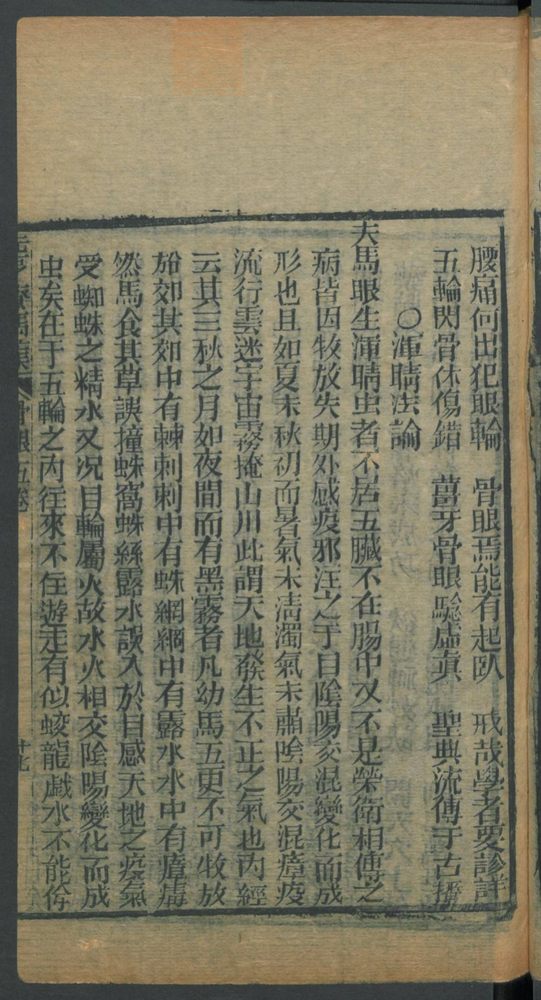 腰痛何出犯眼輪　骨眼焉能有起臥　戒哉學者要診詳
五輪閃骨休傷錯　薑牙骨眼驗虛真　聖典流傳于古播
○渾睛法論
夫馬眼生渾睛虫者不居五臟不在腸中又不是榮衛相傳之
病皆因牧放失期外感疫邪注之于目陰陽交混變化而成
形也且如夏末秋初而暑氣未清濁氣未肅陰陽交混瘴疫
流行雲迷宇宙霧掩山川此謂天地發生不正之氣也內經
云其三秋之月如夜間而有黑霧者凡幼馬五更不可牧放
於郊其郊中有棘刺刺中有蛛網網中有露水水中有瘴毒
然馬食其草誤撞蛛窩蛛絲露水誤入於目感天地之疫氣
受蜘蛛之精水又況目輪屬火故水火相交陰陽變化而成
虫矣在于五輪之內往來不住遊走有似蛟龍戲水不能停
骨眼五卷
十七